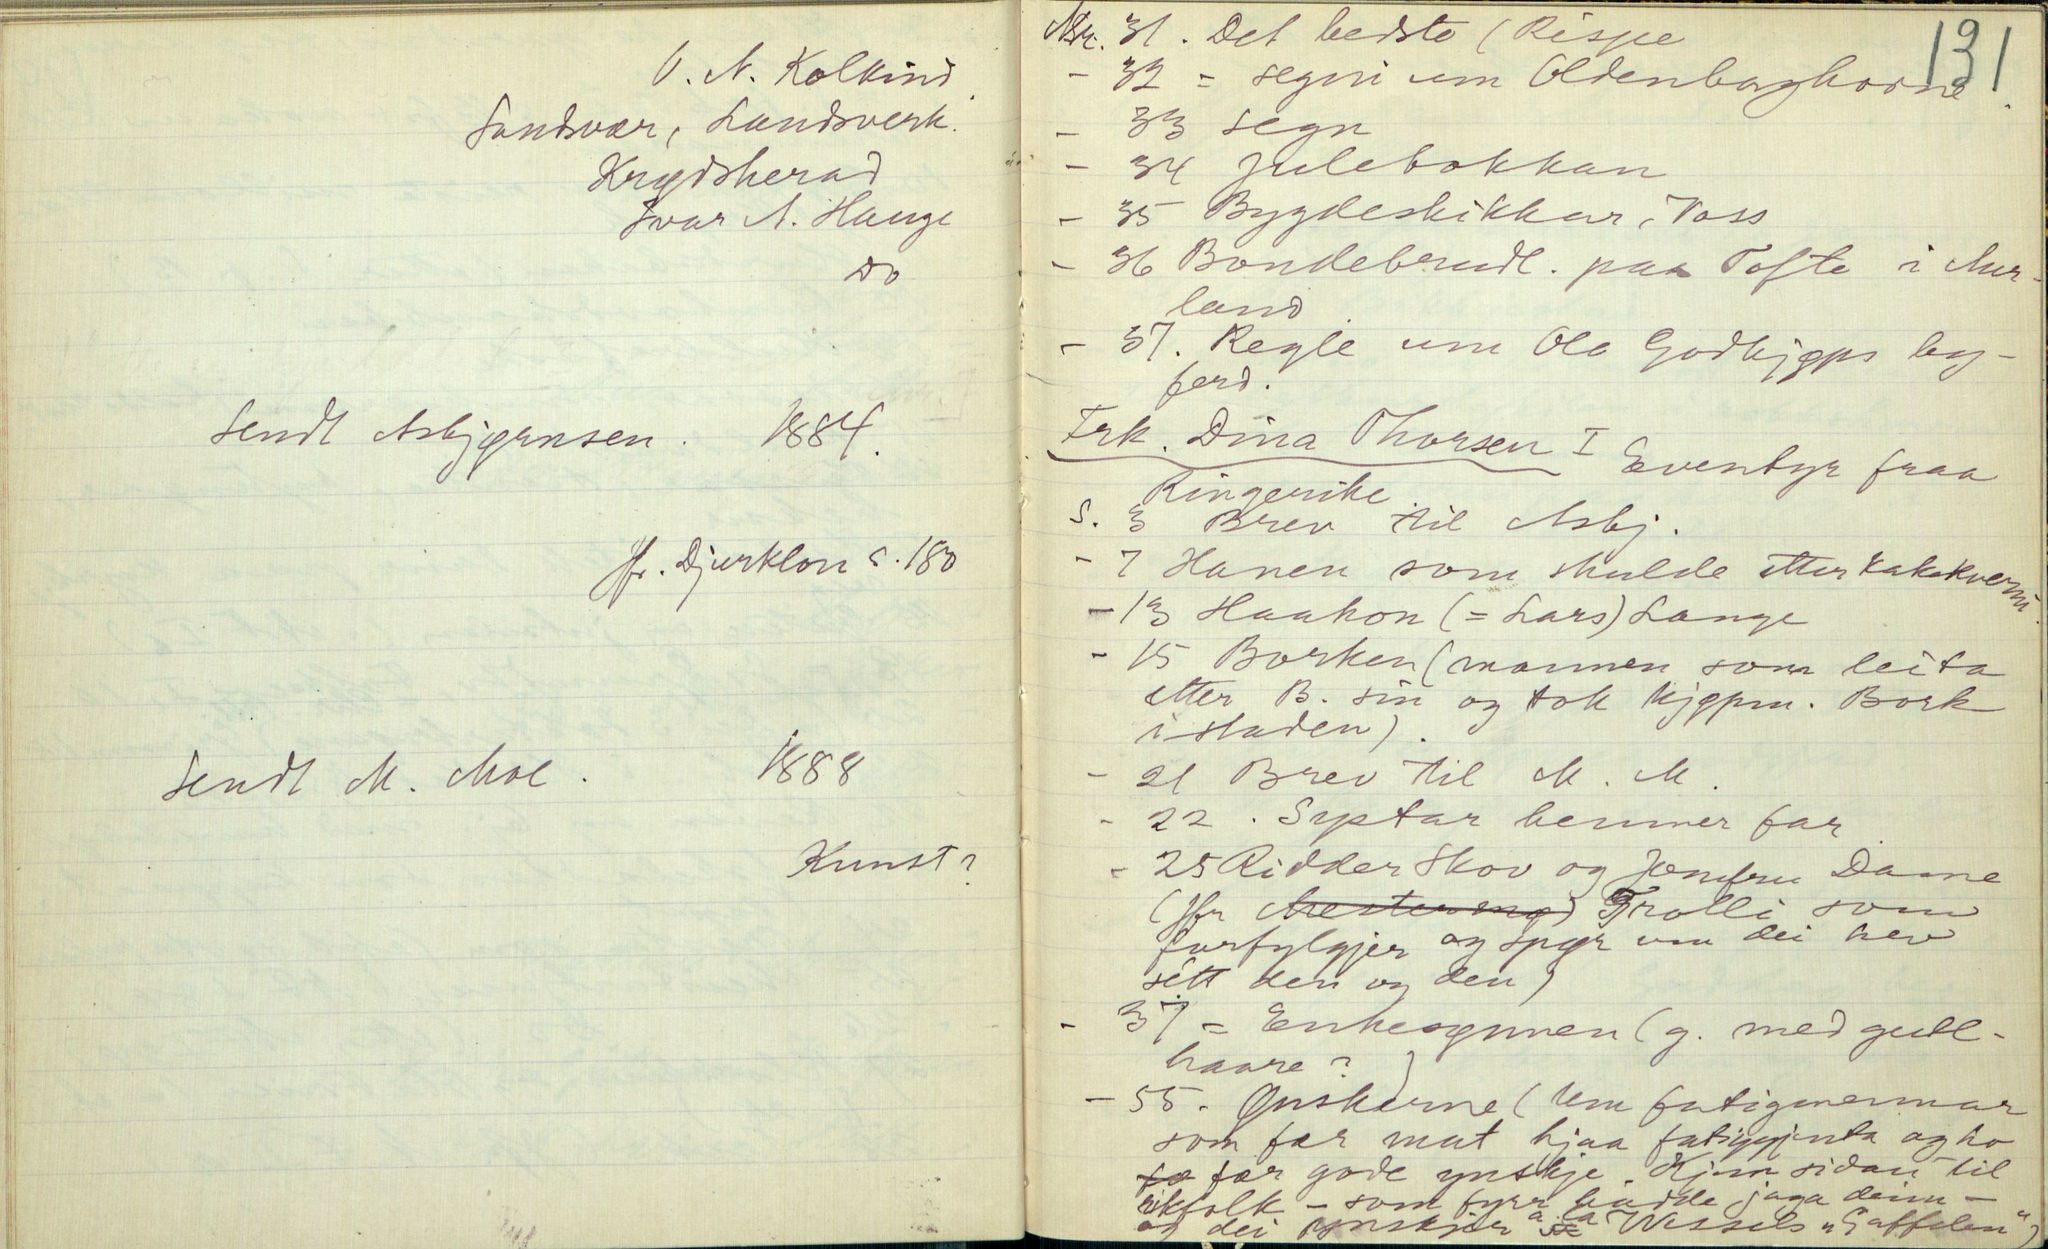 O. N. Kolkind
Sandsvær, Landsverk.
Krydsherad
Ivar A. Hauge
Do
Sendt Asbjørnsen. 1884.
Jfr. Djurklou s. 180
Sendt M. Moe. 1888
Kunst?
131
Nr. 31. Det bedste (Rispe
- 32 = segni um Oldenborghorne.
- 33 segn
- 34 Julebokkan
- 35 Bygdeskikkar, Voss
- 36 Bondebrudl. paa Tofte i Aur-
land
- 37. Regle um Ola Godkjøps
ferd.
Frk. Dina Thorsen I Eventyr fraa
Ringerike.
S. 3 Brev til Asbj.
- 7 Hanen som skulde etter kakekverni.
- 13 Haakon (= Lars) Lange
- 15 Borken (mannen som leita
etter B. sin og tok kjøpm. Bork
i staden).
- 21 Brev til M. M.
- 22. Systar henner far
- 25 Ridder Skov og Jomfru Dame
(jfr Mestermø) Trolli som
forfylgjer og spør um dei hev
sétt den og den)
- 37 = Enkesønnen (g. med gull-
haare?)
- 55. Ønskerne (Um fatigmennar
som fær mat hjaa fatiggjenta og ho
fæ fær gode ynskje. Kjem sidan til
rikfolk - som fyrr hadde jaga deim -
og dei ynskjer a la Wessels "Gaffelen")